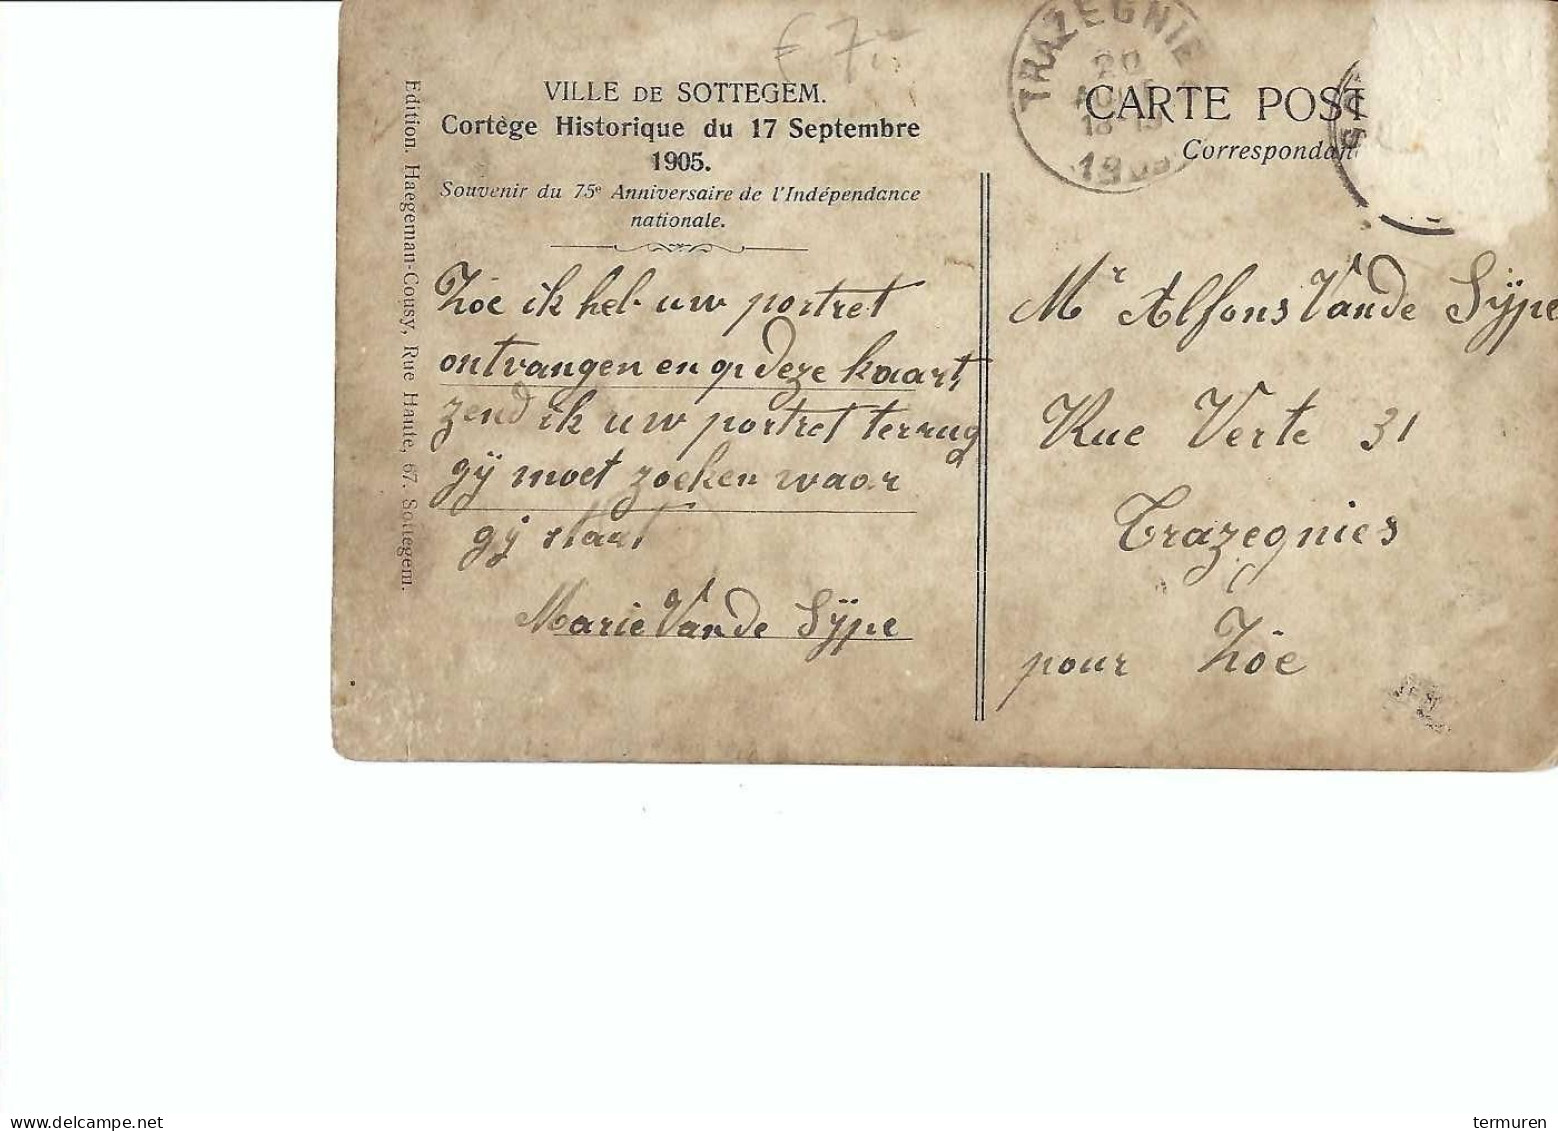 € 7
VILLE DE SOTTEGEM.
Cortège Historique du 17 Septembre
1905.
Souvenir du 75e Anniversaire de l'Indépendance
nationale.
Edition. Haegeman-Cousy, Rue Haute, 67. Sottegem.
Zöe ik heb uw portret
ontvangen en op deze kaart
zend ik uw portret terrug
gÿ moet zoeken waar
gy staat
Marie Van de Sÿpe
TRAZEGNIE
20
18-19
CARTE POST
Correspondan
Mr Alfons Van de Sÿpe
Rue Verte 31
Trazegnies
pour Zöe
delcampe.net
termuren